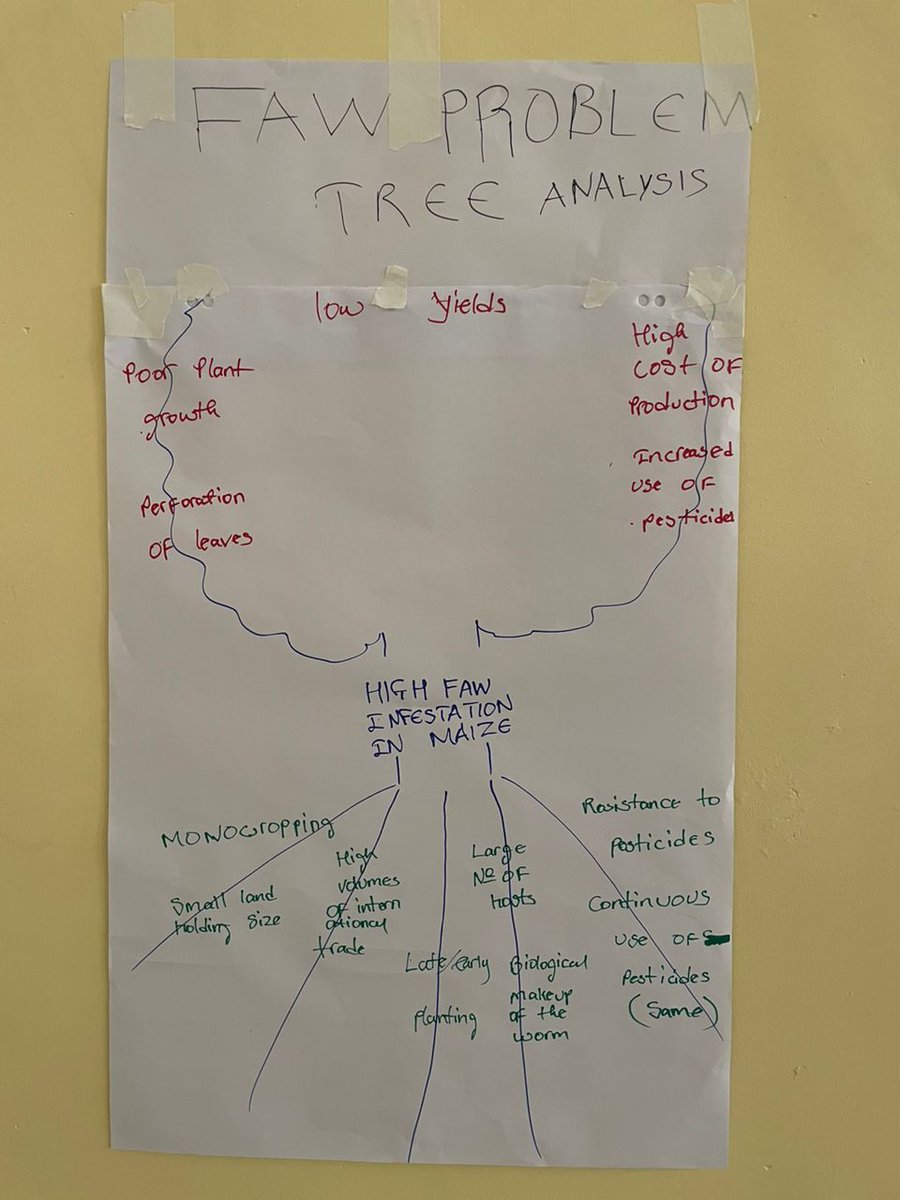 FAW PROBLEM
TREE ANALYSIS
low yields
Poor Plant
growth
Perforation
OF leaves
High
cost OF
Production
Increased
use OF
pesticides
HIGH FAW
INFESTATION
IN MAIZE
MONOcropping
Small land
Holding Size
High
volumes
of intern
ational
trade
Late/early
planting
Large
No OF
hosts
Biological
makeup
of the
worm
Resistance to
Pesticides
Continuous
use OF
Pesticides
(Same)